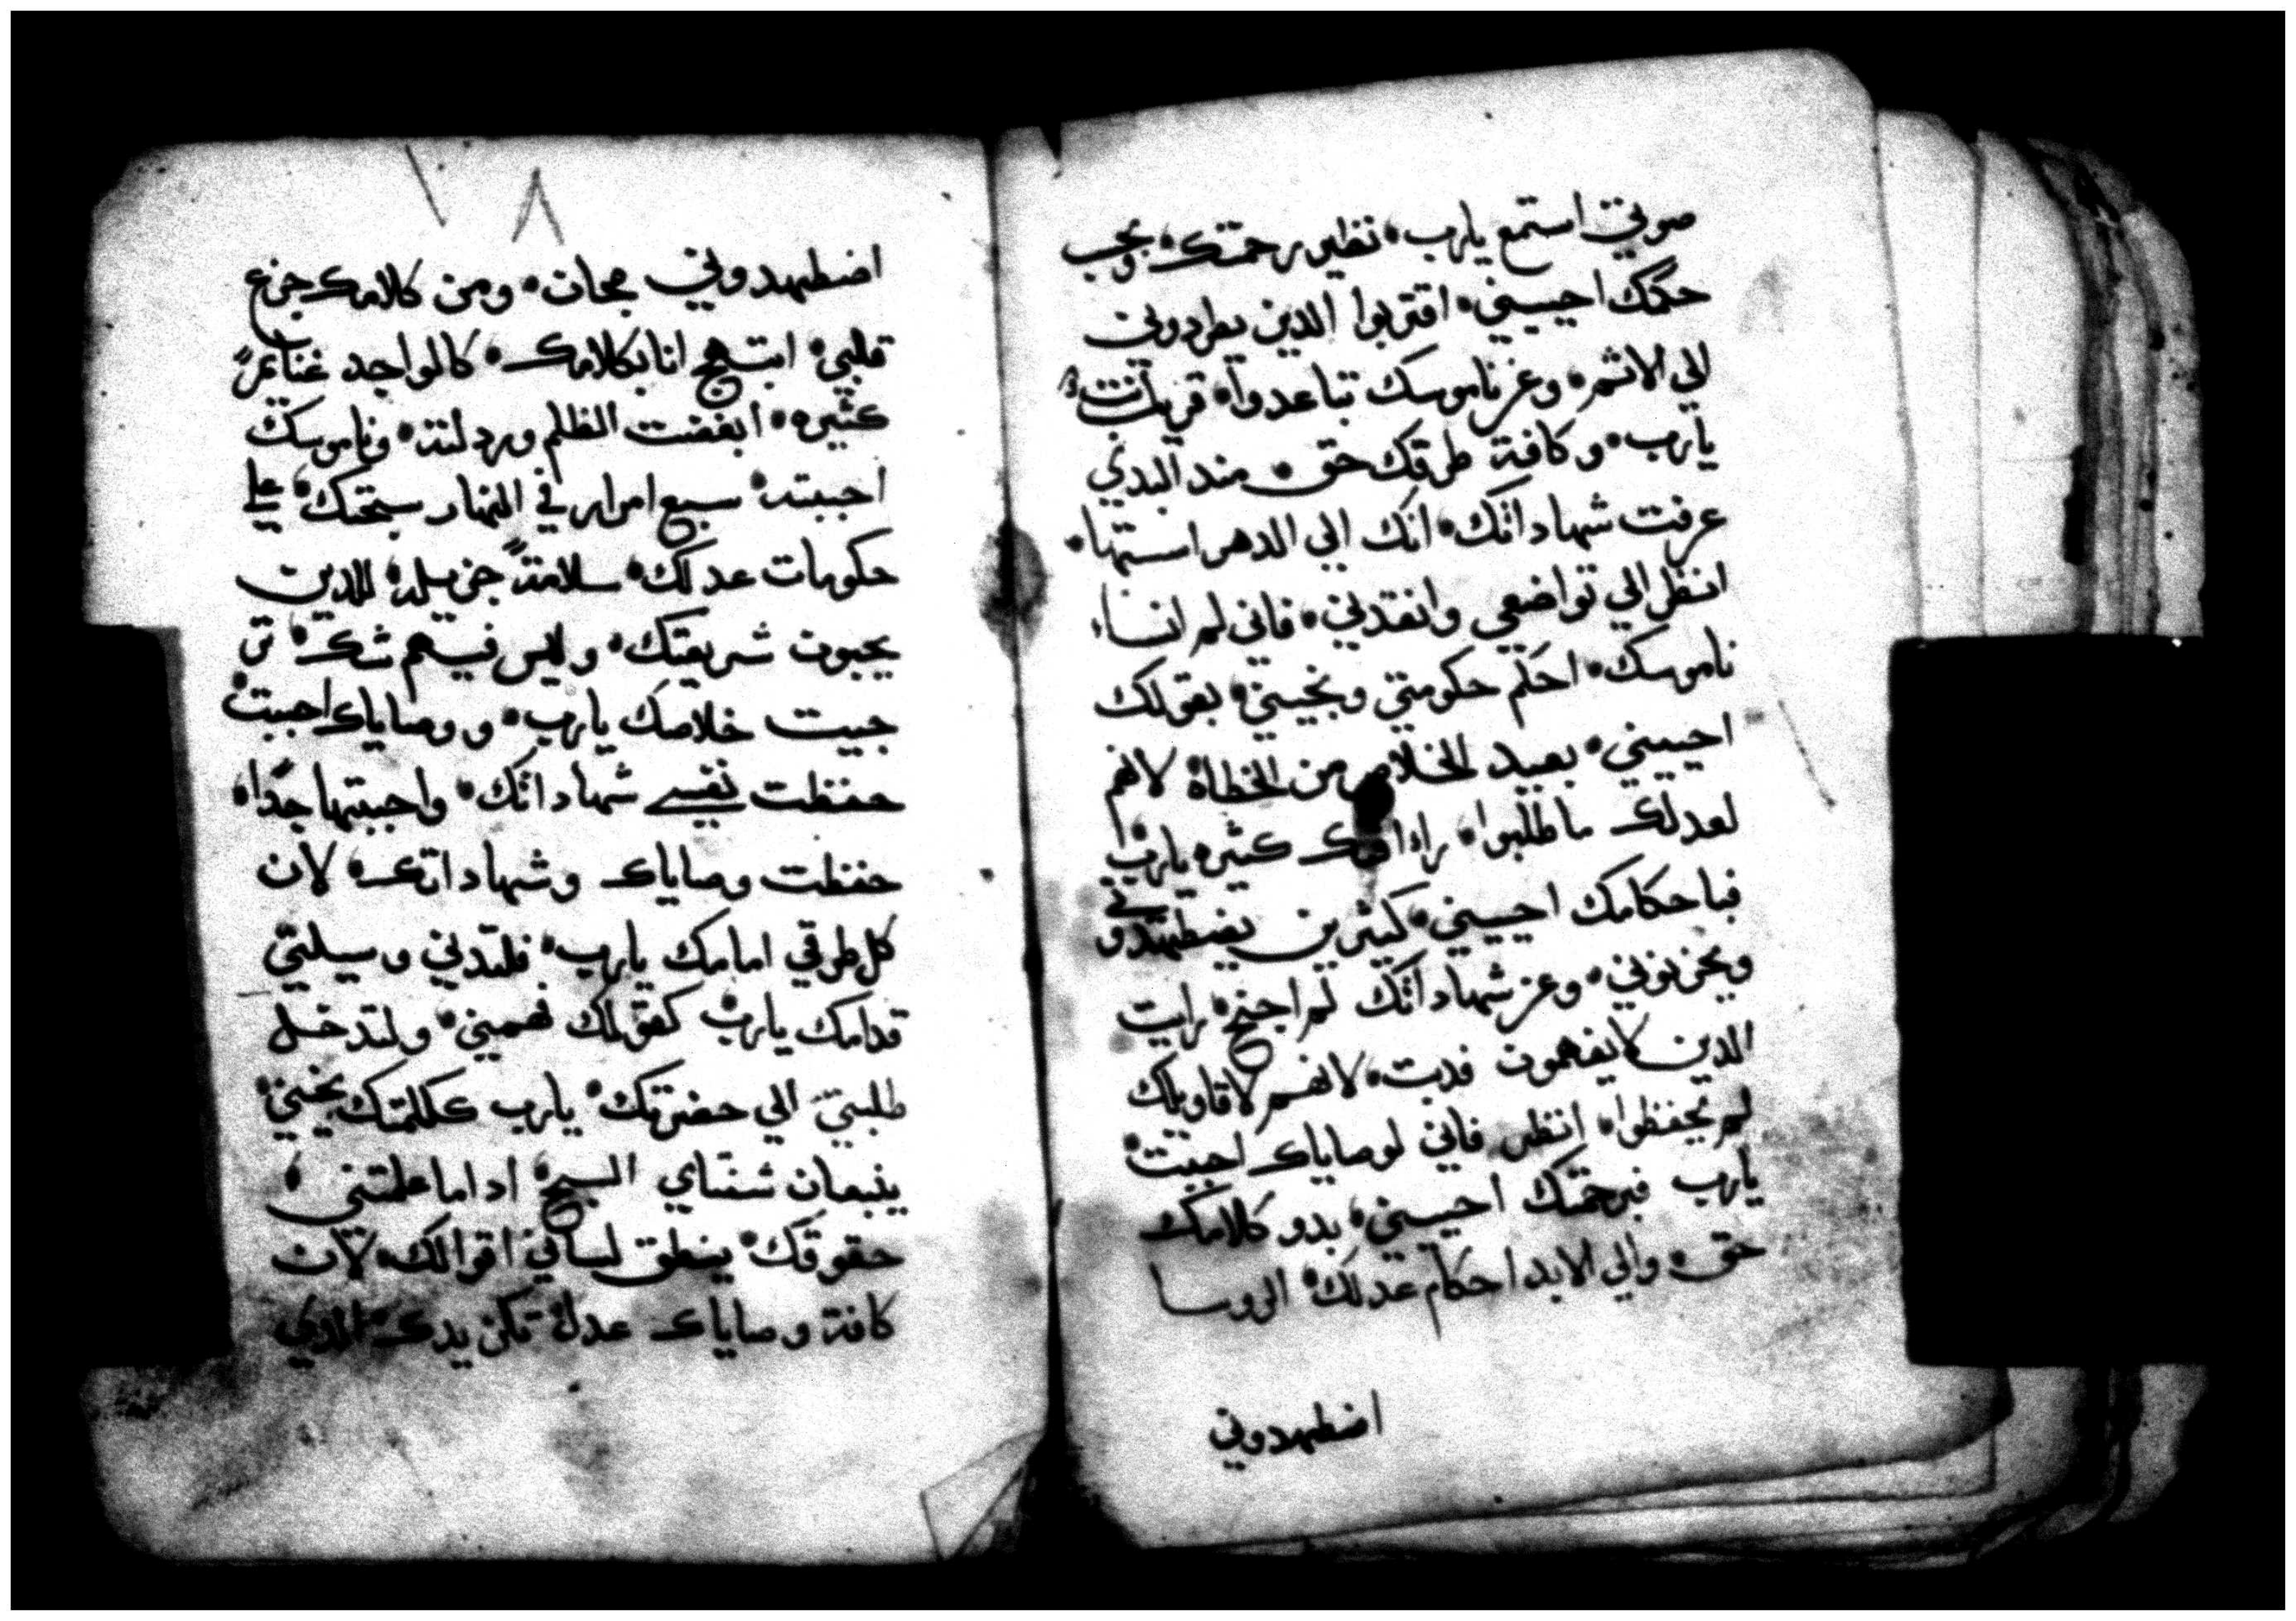 صوتي استمع يارب نظير رحمتك وبحب
حكمك احييني اقتربوا الدين يطرادوني
الي الاثم وعن ناموسك تباعدوا قريب انت
يارب وكافة طرقك حق مند البدي
عرفت شهاداتك انك الي الدهر استتها
انظر الي تواضعي وانقدني فاني لم انساء
ناموسك احكم حكومتي ونجيني بقولك
احييني بعيد الخلاص من الخطاة لانهم
لعدلك ما طلبوا راءافتك كثيره يارب
فباحكامك احييني كثيرين يضطهدوني
ويحزنوني وعن شهاداتك لم اجنح رايت
الدين لا يفهمون فدبت لانهم لاقاويلك
لم يحفظوا انظر فاني لوصاياك احببت
يارب فبرحمتك احييني بدو كلامك
حق والي الابد احكام عدلك الروسا
اضطهدوني
٧٨
اضطهدوني مجان ومن كلامك جزع
قلبي ابتهج انا بكلامك كالواجد غنايمً
كثيره ابغضت الظلم وردلته وناموسك
احببته سبع امرار في النهار سبحتك علي
حكومات عدلك سلامةً جزيله للدين
يحبون شريعتك وليس فيهم شك تر
جيت خلاصك يارب ووصاياك احببت
حفظت نفسي شهاداتك واحببتها جدًا
حفظت وصاياك وشهاداتك لان
كل طرقي امامك يارب فلتدني وسيلتي
قدامك يارب كقولك فهمني ولتدخل
طلبتي الي حضرتك يارب ككلمتك نجيني
ينبعان شفتاي السبح ادا ما علمتني
حقوقك ينطق لساني اقوالك لان
كافة وصاياك عدل تكن يدك الدي